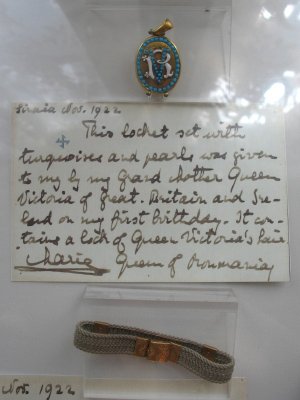 VR
Sinaia Nov. 1922
This locket set with
turquoises and pearls was given
to my by my grand Mother Queen
Victoria of Great. Britain and Ire-
land on my first birthday. It con-
tains a lock of Queen Victoria's hair.
Marie Queen of Roumania
Nov. 1922